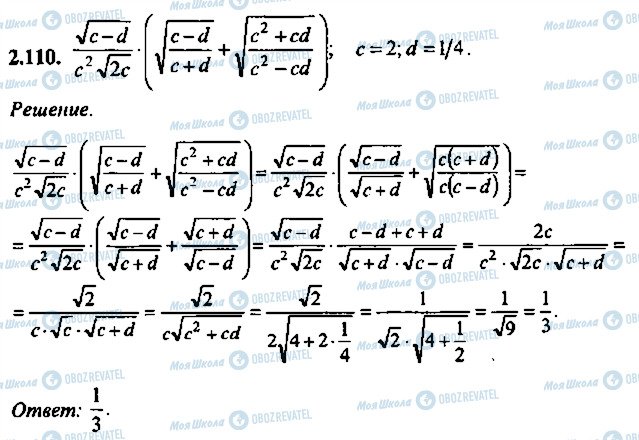 2.110. √(c−d)/(c²√(2c)) · (√((c−d)/(c+d)) + √((c²+cd)/(c²−cd))); c = 2; d = 1/4.
Решение.
√(c−d)/(c²√(2c)) · (√((c−d)/(c+d)) + √((c²+cd)/(c²−cd))) = √(c−d)/(c²√(2c)) · (√(c−d)/√(c+d) + √(c(c+d)/c(c−d))) =
= √(c−d)/(c²√(2c)) · (√(c−d)/√(c+d) + √(c+d)/√(c−d)) = √(c−d)/(c²√(2c)) · (c−d+c+d)/(√(c+d)·√(c−d)) = 2c/(c²·√(2c)·√(c+d)) =
= √2/(c·√c·√(c+d)) = √2/(c√(c²+cd)) = √2/(2√(4+2·1/4)) = 1/(√2·√(4+1/2)) = 1/√9 = 1/3.
Ответ: 1/3.
Моя Школа OBOZREVATEL